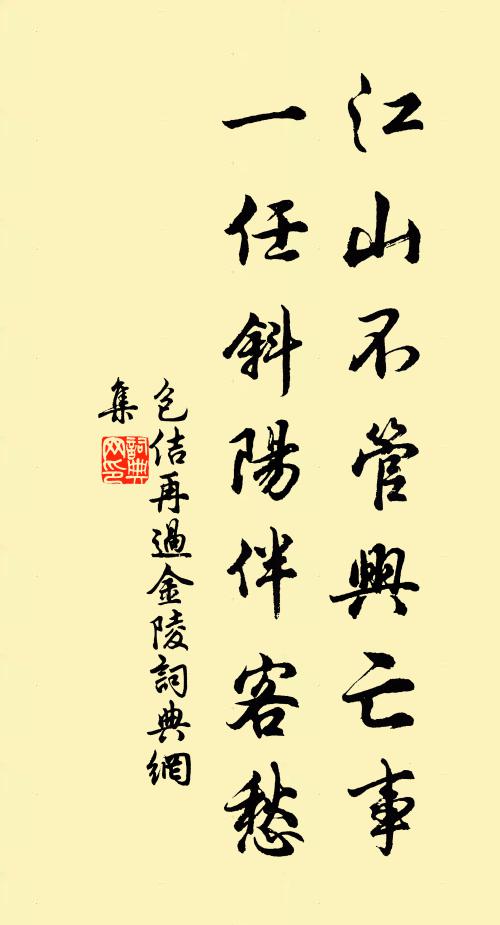 江山不管興亡事
一任斜陽伴客愁
包佶再過金陵詞典網
集
詞典網印